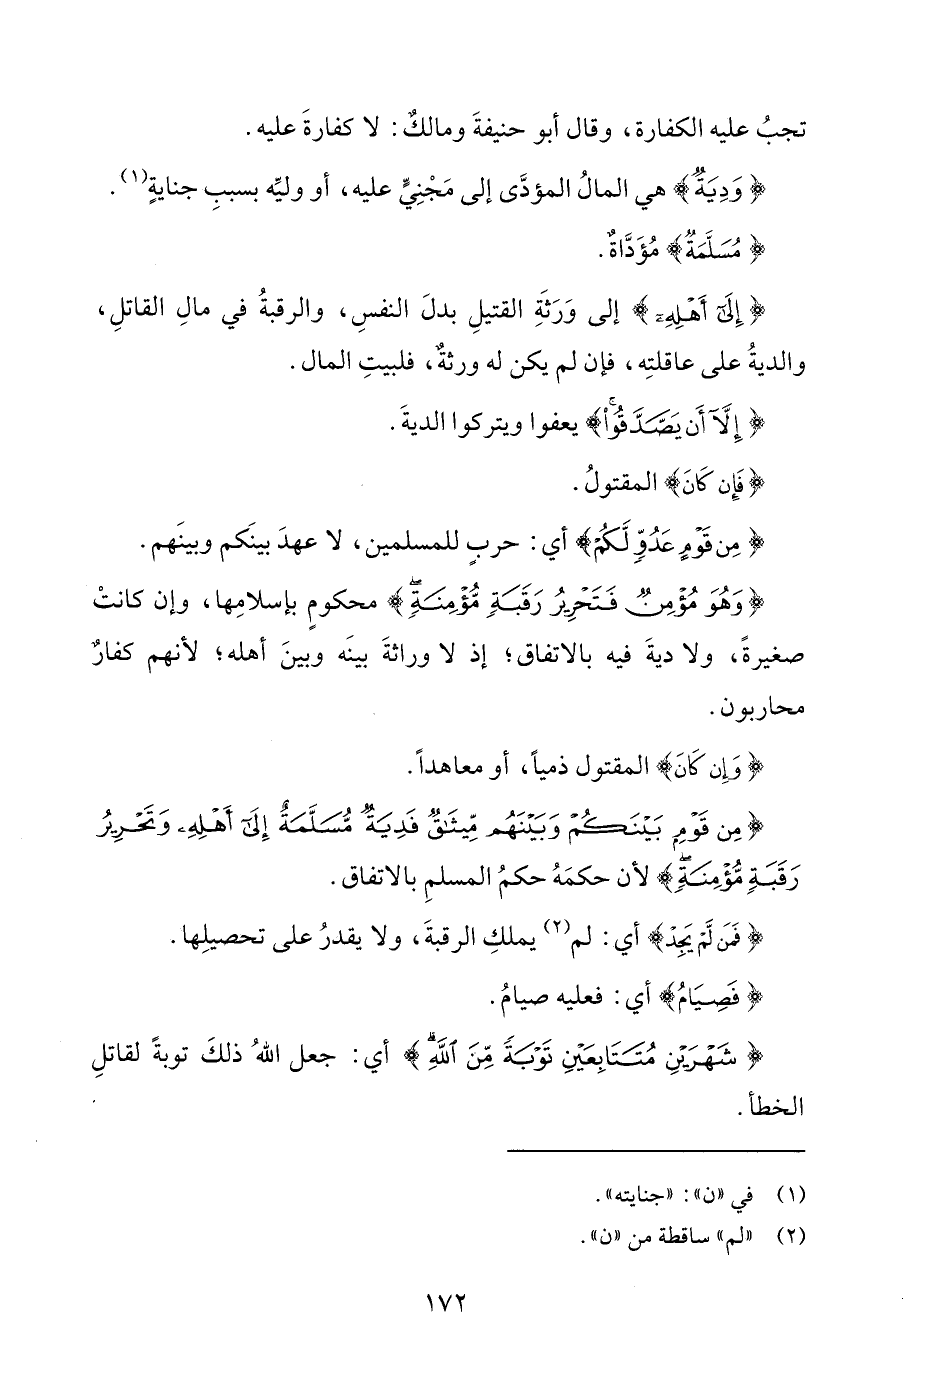 تجبُ عليه الكفارة، وقال أبو حنيفةَ ومالكٌ: لا كفارةَ عليه.
﴿وَدِيَةٌ﴾ هي المالُ المؤدَّى إلى مَجْنِيٍّ عليه، أو وليِّه بسببِ جنايةٍ(١).
﴿مُسَلَّمَةٌ﴾ مُؤَدَّاةٌ.
﴿إِلَىٰٓ أَهْلِهِۦ﴾ إلى وَرَثَةِ القتيلِ بدلَ النفسِ، والرقبةُ في مالِ القاتلِ،
والديةُ على عاقلتِه، فإن لم يكن له ورثةٌ، فلبيتِ المال.
﴿إِلَّآ أَن يَصَّدَّقُوا۟ۚ﴾ يعفوا ويتركوا الديةَ.
﴿فَإِن كَانَ﴾ المقتولُ.
﴿مِن قَوْمٍ عَدُوٍّ لَّكُمْ﴾ أي: حربٍ للمسلمين، لا عهدَ بينَكم وبينَهم.
﴿وَهُوَ مُؤْمِنٌ فَتَحْرِيرُ رَقَبَةٍ مُّؤْمِنَةٍۖ﴾ محكومٍ بإسلامِها، وإن كانتْ
صغيرةً، ولا ديةَ فيه بالاتفاق؛ إذ لا وراثةَ بينَه وبينَ أهله؛ لأنهم كفارٌ
محاربون.
﴿وَإِن كَانَ﴾ المقتول ذمياً، أو معاهداً.
﴿مِن قَوْمٍ بَيْنَكُمْ وَبَيْنَهُم مِّيثَٰقٌ فَدِيَةٌ مُّسَلَّمَةٌ إِلَىٰٓ أَهْلِهِۦ وَتَحْرِيرُ
رَقَبَةٍ مُّؤْمِنَةٍۖ﴾ لأن حكمَهُ حكمُ المسلمِ بالاتفاق.
﴿فَمَن لَّمْ يَجِدْ﴾ أي: لم(٢) يملكِ الرقبةَ، ولا يقدرُ على تحصيلِها.
﴿فَصِيَامُ﴾ أي: فعليه صيامُ.
﴿شَهْرَيْنِ مُتَتَابِعَيْنِ تَوْبَةً مِّنَ ٱللَّهِۗ﴾ أي: جعل اللهُ ذلكَ توبةً لقاتلِ
الخطأ.
(١) في «ن»: «جنايته».
(٢) «لم» ساقطة من «ن».
١٧٢